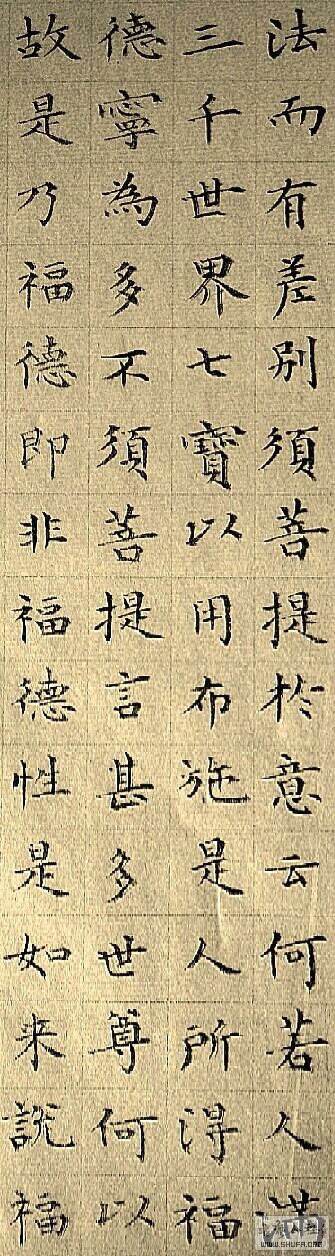 法而有差別須菩提於意云何若人滿
三千世界七寶以用布施是人所得福
德寧為多不須菩提言甚多世尊何以
故是乃福德即非福德性是如来說福
WWW.SHUFA.ORG